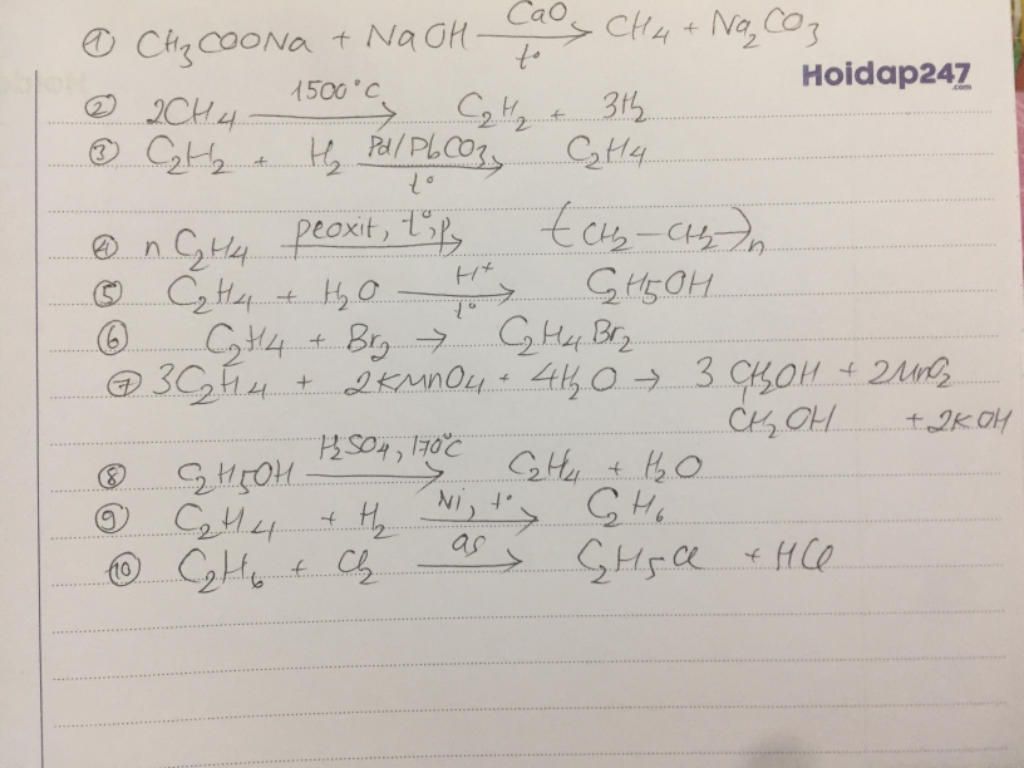 ① CH₃COONa + NaOH —CaO, t°→ CH₄ + Na₂CO₃
Hoidap247.com
② 2CH₄ —1500°C→ C₂H₂ + 3H₂
③ C₂H₂ + H₂ —Pd/PbCO₃, t°→ C₂H₄
④ nC₂H₄ —peoxit, t°, p→ (CH₂–CH₂)ₙ
⑤ C₂H₄ + H₂O —H⁺, t°→ C₂H₅OH
⑥ C₂H₄ + Br₂ → C₂H₄Br₂
⑦ 3C₂H₄ + 2KMnO₄ + 4H₂O → 3 CH₂OH + 2MnO₂
CH₂OH + 2KOH
⑧ C₂H₅OH —H₂SO₄, 170°C→ C₂H₄ + H₂O
⑨ C₂H₄ + H₂ —Ni, t°→ C₂H₆
⑩ C₂H₆ + Cl₂ —as→ C₂H₅Cl + HCl